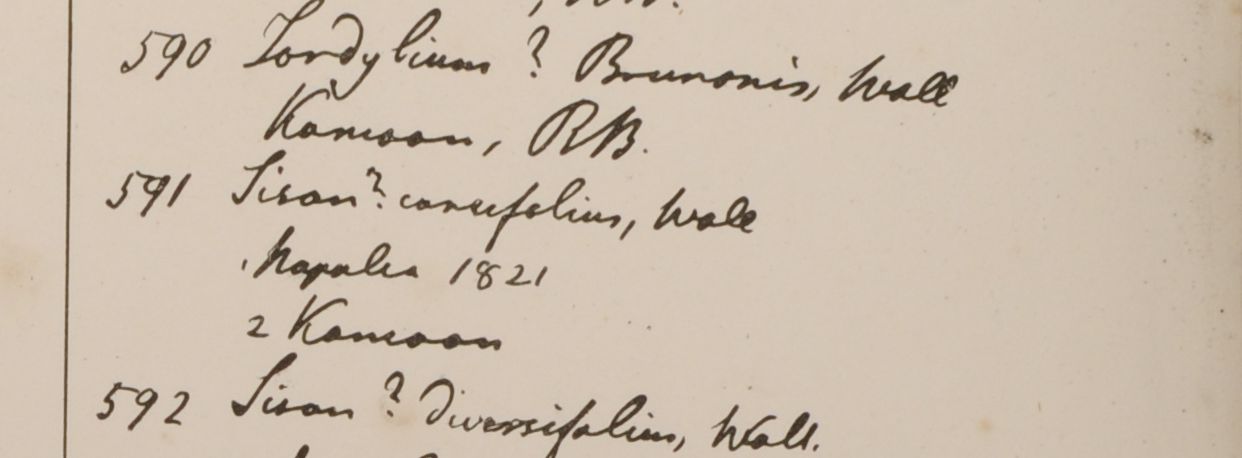 590 Tordylium ? Brunonis, Wall
Kamoon, RB.
591 Sison ? coniifolium, Wall
1 Napalia 1821
2 Kamoon
592 Sison ? diversifolium, Wall.